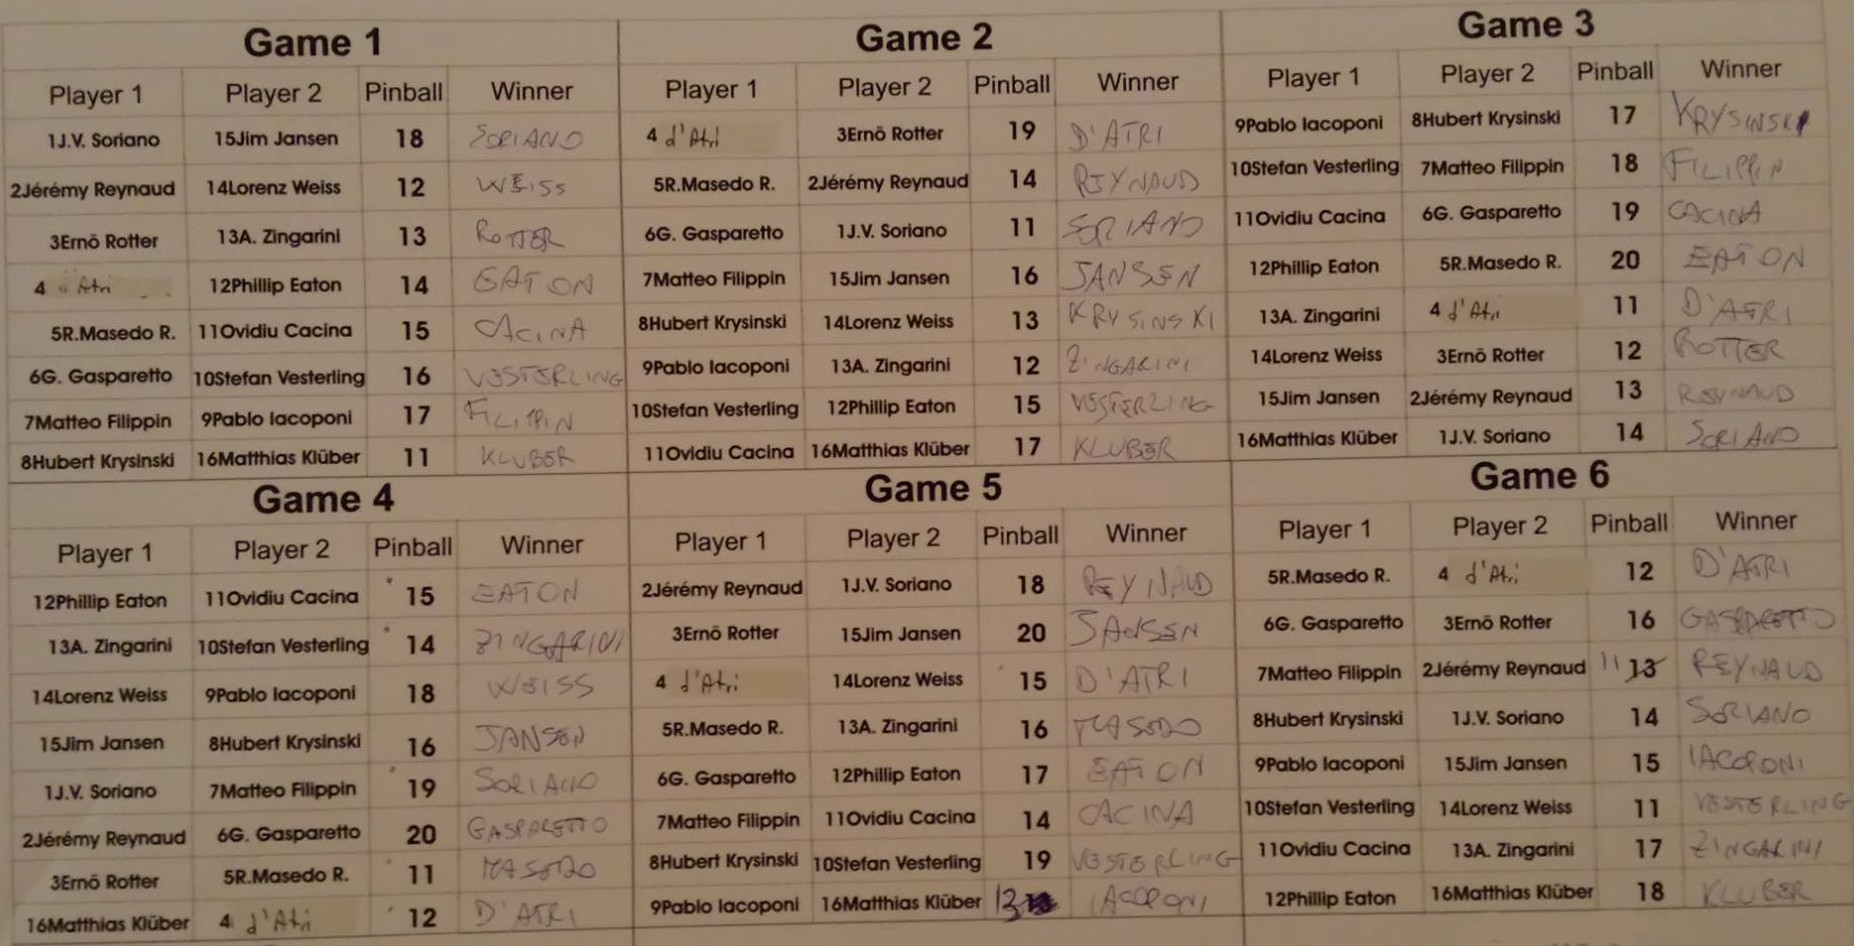 Game 1
Player 1 Player 2 Pinball Winner
1J.V. Soriano 15Jim Jansen 18 SORIANO
2Jérémy Reynaud 14Lorenz Weiss 12 WEISS
3Ernõ Rotter 13A. Zingarini 13 ROTTER
4 d'Atri 12Phillip Eaton 14 EATON
5R.Masedo R. 11Ovidiu Cacina 15 CACINA
6G. Gasparetto 10Stefan Vesterling 16 VESTERLING
7Matteo Filippin 9Pablo Iacoponi 17 FILIPPIN
8Hubert Krysinski 16Matthias Klüber 11 KLUBER
Game 2
Player 1 Player 2 Pinball Winner
4 d'Atri 3Ernõ Rotter 19 D'ATRI
5R.Masedo R. 2Jérémy Reynaud 14 REYNAUD
6G. Gasparetto 1J.V. Soriano 11 SORIANO
7Matteo Filippin 15Jim Jansen 16 JANSEN
8Hubert Krysinski 14Lorenz Weiss 13 KRYSINSKI
9Pablo Iacoponi 13A. Zingarini 12 ZINGARINI
10Stefan Vesterling 12Phillip Eaton 15 VESTERLING
11Ovidiu Cacina 16Matthias Klüber 17 KLUBER
Game 3
Player 1 Player 2 Pinball Winner
9Pablo Iacoponi 8Hubert Krysinski 17 KRYSINSKI
10Stefan Vesterling 7Matteo Filippin 18 FILIPPIN
11Ovidiu Cacina 6G. Gasparetto 19 CACINA
12Phillip Eaton 5R.Masedo R. 20 EATON
13A. Zingarini 4 d'Atri 11 D'ATRI
14Lorenz Weiss 3Ernõ Rotter 12 ROTTER
15Jim Jansen 2Jérémy Reynaud 13 REYNAUD
16Matthias Klüber 1J.V. Soriano 14 SORIANO
Game 4
Player 1 Player 2 Pinball Winner
12Phillip Eaton 11Ovidiu Cacina 15 EATON
13A. Zingarini 10Stefan Vesterling 14 ZINGARINI
14Lorenz Weiss 9Pablo Iacoponi 18 WEISS
15Jim Jansen 8Hubert Krysinski 16 JANSEN
1J.V. Soriano 7Matteo Filippin 19 SORIANO
2Jérémy Reynaud 6G. Gasparetto 20 GASPARETTO
3Ernõ Rotter 5R.Masedo R. 11 MASEDO
16Matthias Klüber 4 d'Atri 12 D'ATRI
Game 5
Player 1 Player 2 Pinball Winner
2Jérémy Reynaud 1J.V. Soriano 18 REYNAUD
3Ernõ Rotter 15Jim Jansen 20 JANSEN
4 d'Atri 14Lorenz Weiss 15 D'ATRI
5R.Masedo R. 13A. Zingarini 16 MASEDO
6G. Gasparetto 12Phillip Eaton 17 EATON
7Matteo Filippin 11Ovidiu Cacina 14 CACINA
8Hubert Krysinski 10Stefan Vesterling 19 VESTERLING
9Pablo Iacoponi 16Matthias Klüber 13 IACOPONI
Game 6
Player 1 Player 2 Pinball Winner
5R.Masedo R. 4 d'Atri 12 D'ATRI
6G. Gasparetto 3Ernõ Rotter 16 GASPARETTO
7Matteo Filippin 2Jérémy Reynaud 11 13 REYNAUD
8Hubert Krysinski 1J.V. Soriano 14 SORIANO
9Pablo Iacoponi 15Jim Jansen 15 IACOPONI
10Stefan Vesterling 14Lorenz Weiss 11 VESTERLING
11Ovidiu Cacina 13A. Zingarini 17 ZINGARINI
12Phillip Eaton 16Matthias Klüber 18 KLUBER